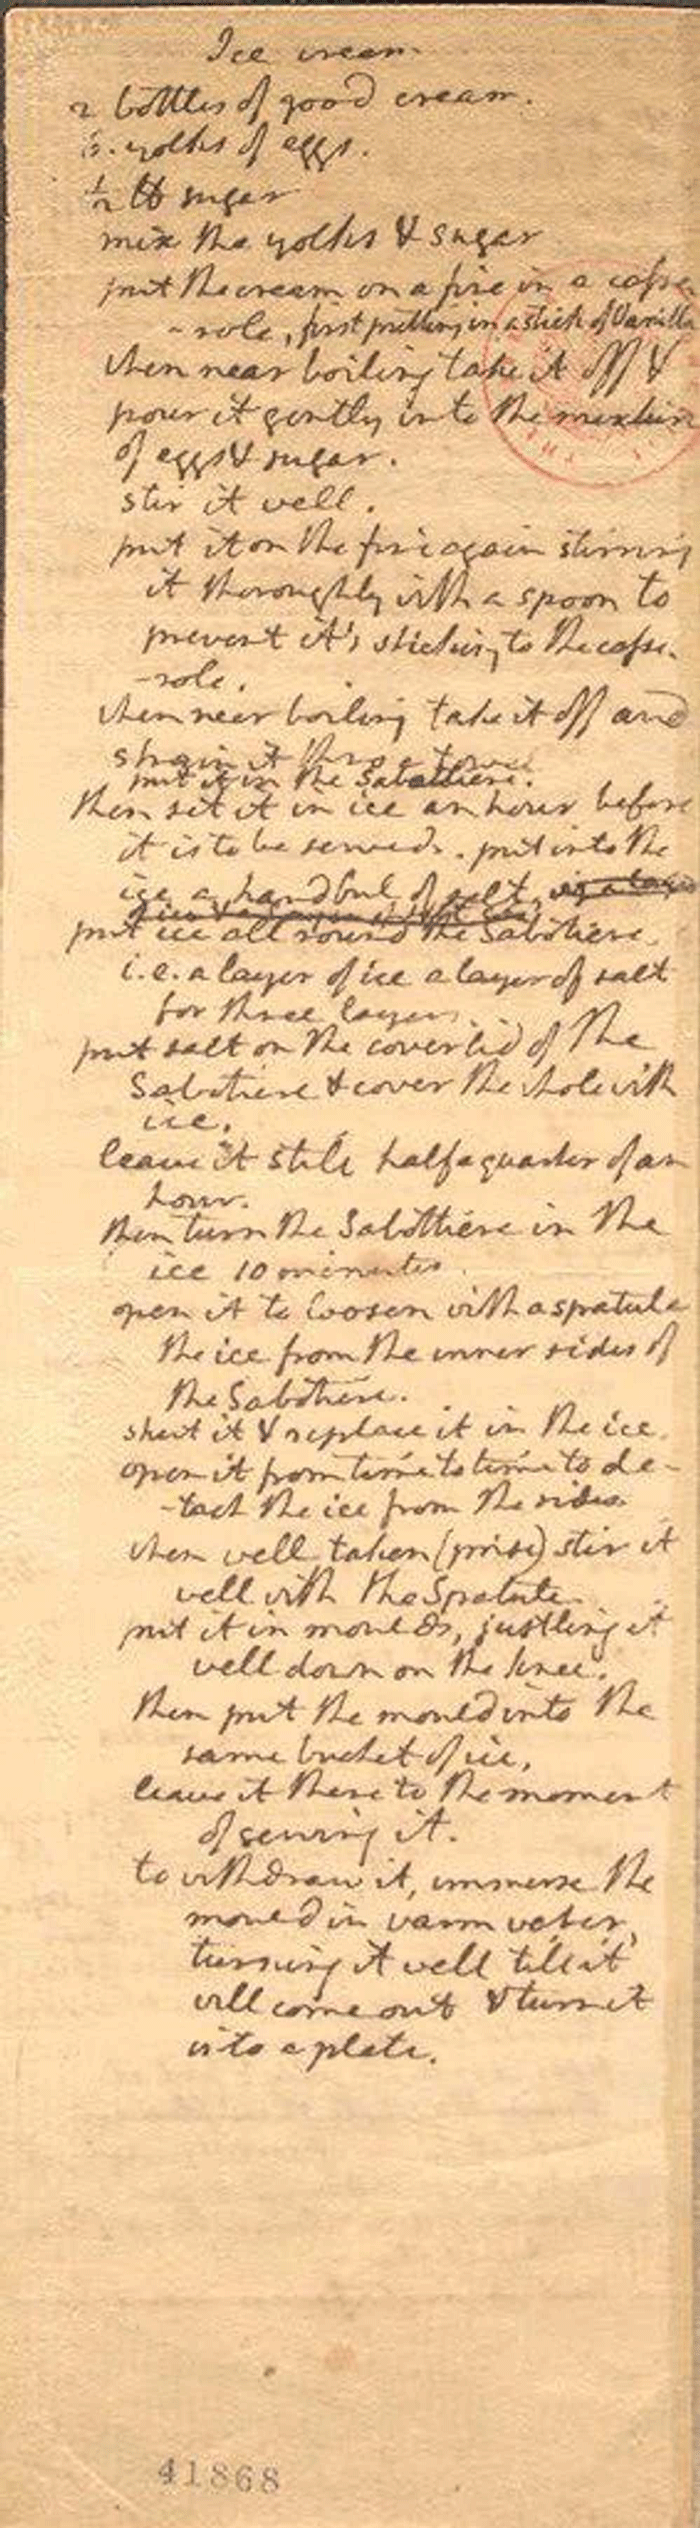 Ice cream.
2 bottles of good cream.
6. yolks of eggs.
1/2 ℔ sugar
mix the yolks & sugar
put the cream on a fire in a casse-
-role, first putting in a stick of Vanilla.
when near boiling take it off &
pour it gently into the mixture
of eggs & sugar.
stir it well.
put it on the fire again stirring
it thoroughly with a spoon to
prevent it's sticking to the casse-
-role.
when near boiling take it off and
strain it thro' a towel.
put it in the Sabottiere.
then set it in ice an hour before
it is to be served. put into the
ice a handful of salt.
put ice all round the Sabotiere
i.e. a layer of ice a layer of salt
for three layers.
put salt on the coverlid of the
Sabotiere & cover the whole with
ice.
leave it still half a quarter of an
hour.
then turn the Sabottiere in the
ice 10 minutes
open it to loosen with a spatula
the ice from the inner sides of
the Sabotiere.
shut it & replace it in the ice
open it from time to time to de-
-tach the ice from the sides
when well taken (prise) stir it
well with the Spatula.
put it in moulds, justling it
well down on the knee.
then put the mould into the
same bucket of ice.
leave it there to the moment
of serving it.
to withdraw it, immerse the
mould in warm water,
turning it well till it
will come out & turn it
into a plate.
41868